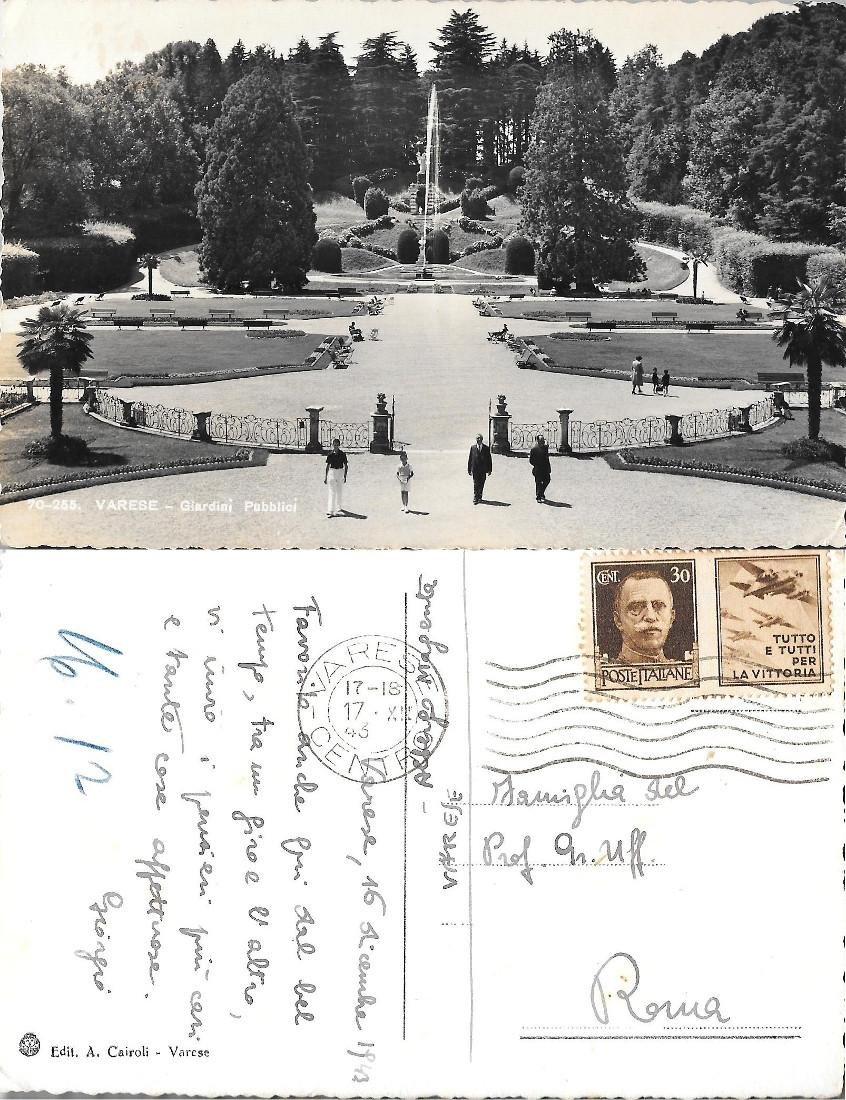 70-255. VARESE - Giardini Pubblici
CENT. 30
POSTE ITALIANE
TUTTO
E TUTTI
PER
LA VITTORIA
VARESE
17-18
17 · XII
43
CENTRO
16.12
Varese, 16 dicembre 1943
Favorita anche qui dal bel
tempo, tra un giro e l'altro,
vi invio i pensieri più cari
e tante cose affettuose.
Giorgio
VARESE
Famiglia del
Prof. Gr. Uff.
Roma
Edit. A. Cairoli - Varese